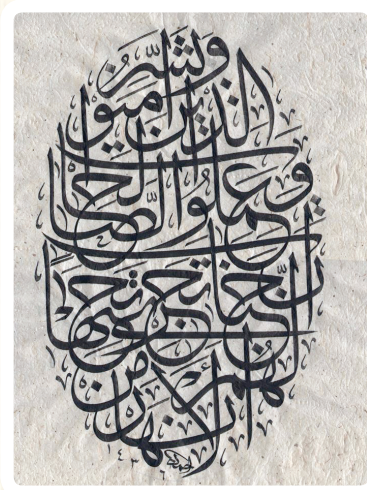 وَبَشِّرِ
الَّذِينَ آمَنُوا
وَعَمِلُوا الصَّالِحَاتِ
أَنَّ لَهُمْ جَنَّاتٍ تَجْرِي مِنْ تَحْتِهَا
الْأَنْهَارُ
١٤٣٦